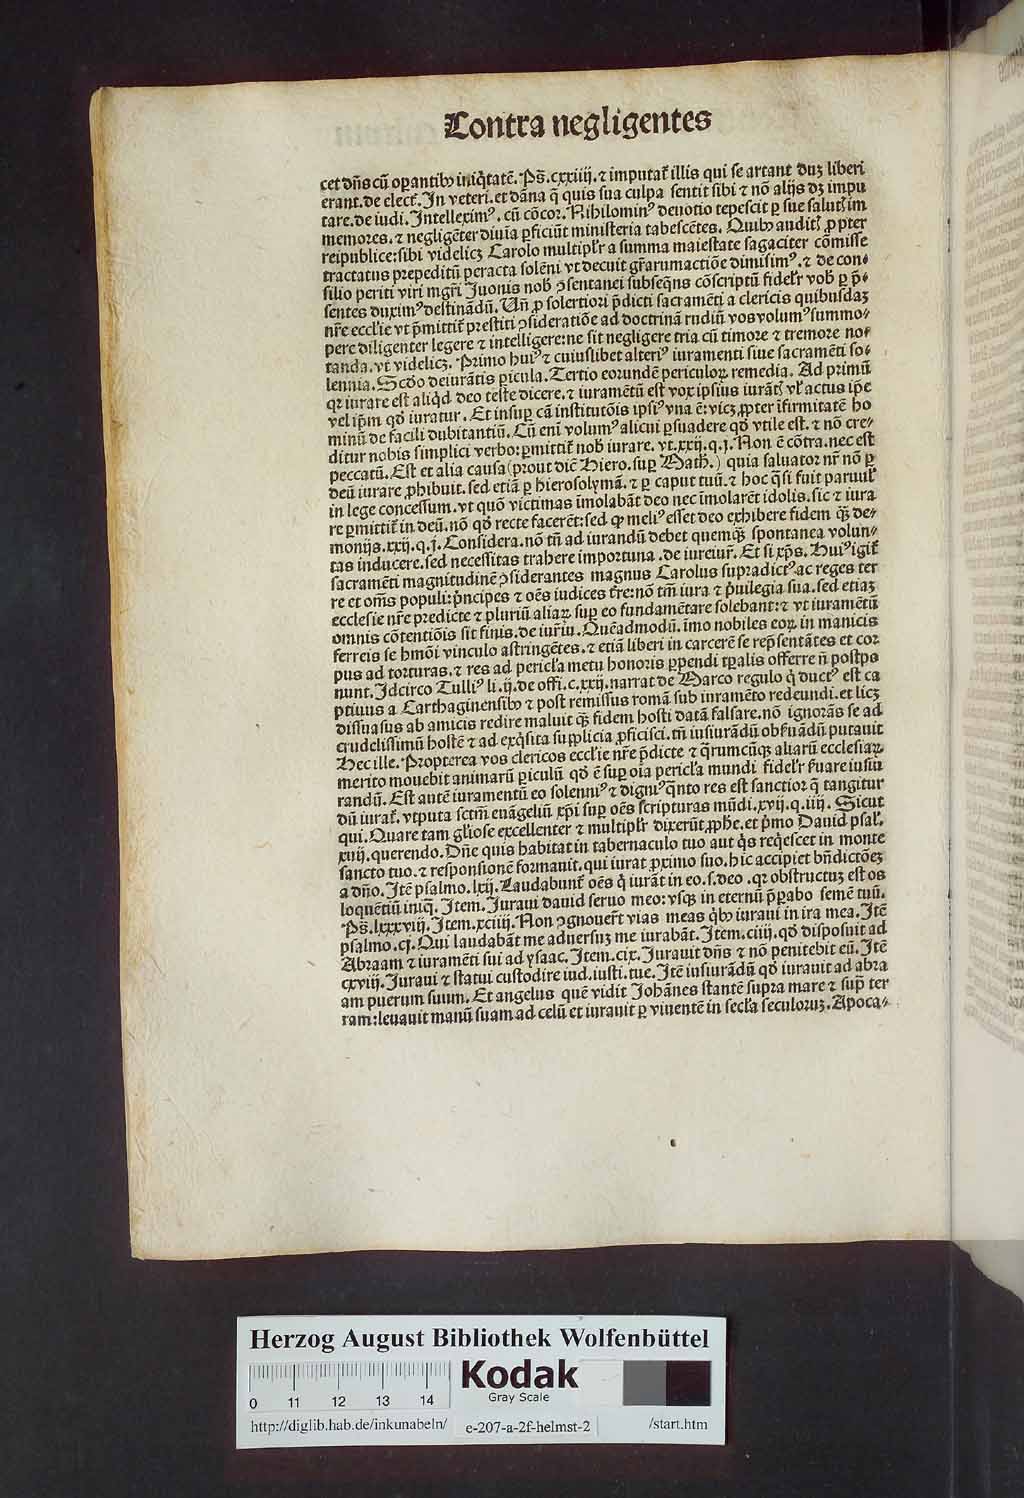 Contra negligentes
cet dñs cū oꝑantibꝰ iniq̇tatē. Ps̄. cxxiiij. ⁊ imputat̄ illis qui se artant duꝫ liberi
erant. de elect̄. In veteri. et dāna q̄ quis sua culpa sentit sibi ⁊ nō alijs dꝫ impu
tare. de iudi. Intelleximꝰ. cū cōcor. Nihilominꝰ deuotio tepescit ꝑ sue salutꝭ im
memores. ⁊ negligēter diuīa ꝑficiūt ministeria tabescētes. Quibꝰ auditꝭ ꝓpter
reipublice: sibi videlicꝫ Carolo multipl̄r a summa maiestate sagaciter cōmisse
tractatus prepeditū peracta solēni vt decuit gr̄arumactiōe dimisimꝰ. ⁊ de con⸗
silio periti viri mgr̄i Iuonis nob̄ ꝯsentanei subseq̄ns cōscriptū fidel̄r vob̄ ꝑ p̄⸗
sentes duximꝰ destinādū. Un̄ ꝓ solertiori p̄dicti sacramēti a clericis quibusdaꝫ
nr̄e eccl̄ie vt p̄mittit̄ prestiti ꝯsideratiōe ad doctrinā rudiū vos volumꝰ summo⸗
pere diligenter legere ⁊ intelligere: ne sit negligere tria cū timore ⁊ tremore no⸗
tanda. vt videlicꝫ. Primo huiꝰ ⁊ cuiuslibet alteriꝰ iuramenti siue sacramēti so⸗
lennia. Scd̄o deiurātis ꝑicula. Tertio eorundē periculoꝝ remedia. Ad primū
qꝛ iurare est aliq̇d deo teste dicere. ⁊ iuramētū est vox ipsius iurātꝭ vl̄ actus ip̄e
vel ip̄m qd̄ iuratur. Et insuꝑ cā institutōis ipsiꝰ vna ē: vicꝫ ꝓpter īfirmitatē ho
minū de facili dubitantiū. Cū enī volumꝰ alicui ꝑsuadere qd̄ vtile est. ⁊ nō cre⸗
ditur nobis simplici verbo: ꝑmittit̄ nob̄ iurare. vt. xxij. q. j. Non ē cōtra. nec est
peccatū. Est et alia causa (prout dic̄ Hiero. suꝑ Math.) quia saluator nr̄ nō ꝑ
deū iurare ꝓhibuit. sed etiā ꝑ hierosolymā. ⁊ ꝑ caput tuū. ⁊ hoc q̄si fuit paruul̄
in lege concessum. vt quō victimas īmolabāt deo nec īmolarēt idolis. sic ⁊ iura
re ꝑmittit̄ in deū. nō qd̄ recte facerēt: sed ꝙ meliꝰ esset deo exhibere fidem qꝫ̄ de⸗
monijs. xxij. q. j. Considera. nō tn̄ ad iurandū debet quemqꝫ̄ spontanea volun⸗
tas inducere. sed necessitas trahere importuna. de iureiur̄. Et si xp̄s. Huiꝰ igit̄
sacramēti magnitudinē ꝯsiderantes magnus Carolus supradictꝰ ac reges ter
re et om̄s populi: p̄ncipes ⁊ oēs iudices tr̄e: nō tm̄ iura ⁊ p̄uilegia sua. sed etiaꝫ
ecclesie nr̄e predicte ⁊ pluriū aliaꝝ suꝑ eo fundamētare solebant: ⁊ vt iuramētū
omnis cōtentiōis sit finis. de iur̄iu. Quēadmodū. imo nobiles eoꝝ in manicis
ferreis se hmōi vinculo astringētes. ⁊ etiā liberi in carcerē se rep̄sentātes et cor
pus ad torturas. ⁊ res ad pericl̄a metu honoris ꝑpendi tꝑalis offerre n̄ postpo
nunt. Idcirco Tulliꝰ li. ij. de offi. c. xxij. narrat de Marco regulo q̇ ductꝰ est ca
ptiuus a Carthaginensibꝰ ⁊ post remissus romā sub iuramēto redeundi. et licꝫ
dissuasus ab amicis redire maluit qꝫ̄ fidem hosti datā falsare. nō ignorās se ad
crudelissimū hostē ⁊ ad exq̇sita supplicia ꝓficisci. tn̄ iusiurādū obẜuādū putauit
Hec ille. Propterea vos clericos eccl̄ie nr̄e p̄dicte ⁊ q̄rumcūqꝫ aliarū ecclesiaꝝ
merito mouebit animarū ꝑiculū qd̄ ē suꝑ oīa pericl̄a mundi fidel̄r ẜuare iusiu
randū. Est autē iuramentū eo solenniꝰ ⁊ digniꝰ q̄nto res est sanctior q̄ tangitur
dū iurat̄. vtputa sctm̄ euāgeliū xp̄i suꝑ oēs scripturas mūdi. xvij. q. iiij. Sicut
qui. Quare tam gl̄iose excellenter ⁊ multipl̄r dixerūt ꝓphe. et p̄mo Dauid psal̄.
xiiij. querendo. Dn̄e quis habitat in tabernaculo tuo aut q̇s reqescet in monte
sancto tuo. ⁊ responsionē formauit. qui iurat ꝓximo suo. hic accipiet bn̄dictōeꝫ
a dn̄o. Itē psalmo. lxij. Laudabunt̄ oēs q̇ iurāt in eo. s. deo. qꝛ obstructuꝫ est os
loquētiū iniq̄. Item. Iuraui dauid seruo meo: vsqꝫ in eternū p̄ꝑabo semē tuū.
Ps̄. lxxxviij. Item. xciiij. Non ꝯgnouer̄t vias meas q̇bꝰ iuraui in ira mea. Itē
psalmo. cj. Qui laudabāt me aduersuꝫ me iurabāt. Item. ciiij. qd̄ disposuit ad
Abraam ⁊ iuramēti sui ad ysaac. Item. cix. Iurauit dn̄s ⁊ nō penitebit eū. Itē
cxviij. Iuraui ⁊ statui custodire iud. iusti. tue. Itē iusiurādū qd̄ iurauit ad abra
am puerum suum. Et angelus quē vidit Johānes stantē supra mare ⁊ suꝑ ter
ram: leuauit manū suam ad celū et iurauit ꝑ viuentē in secl̄a seculoruꝫ. Apoca⸗
Herzog August Bibliothek Wolfenbüttel
Kodak
Gray Scale
0 11 12 13 14
http://diglib.hab.de/inkunabeln/ e-207-a-2f-helmst-2 /start.htm